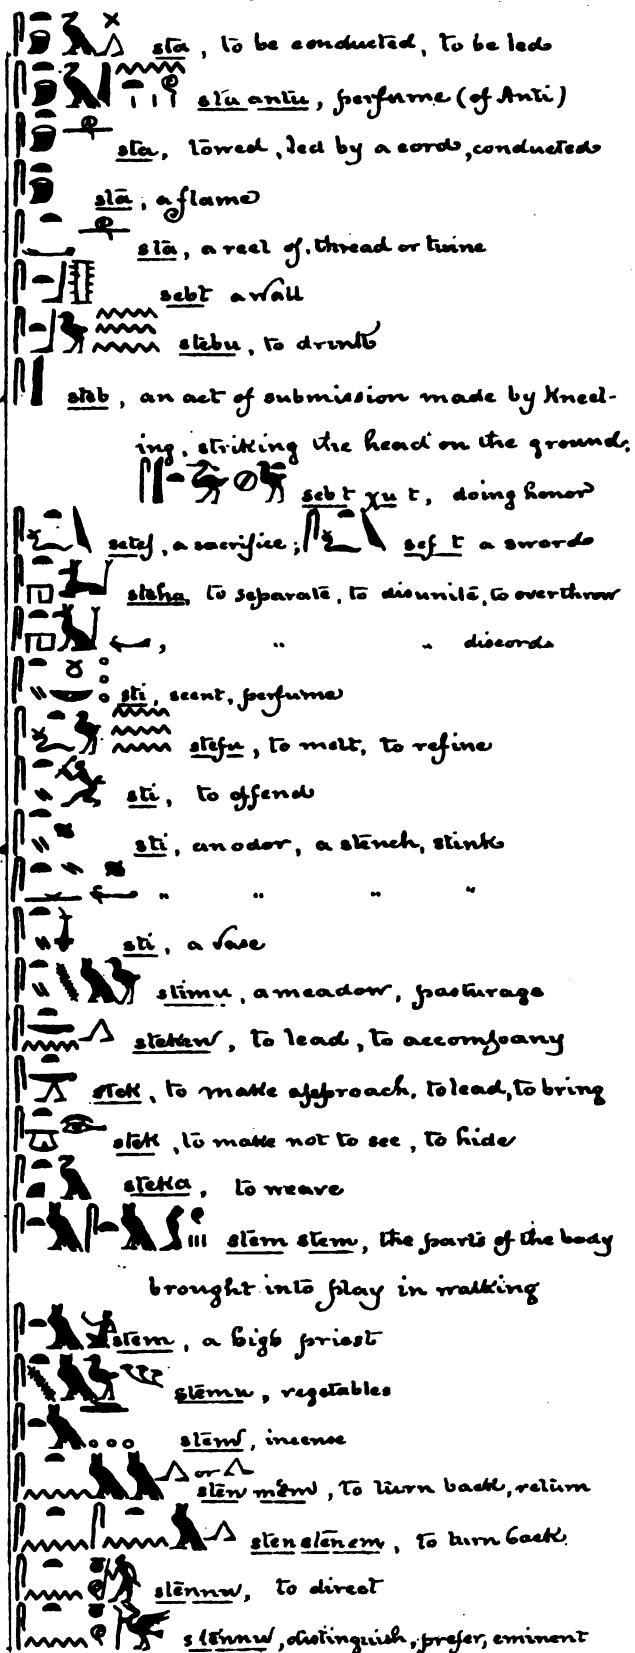 sta, to be conducted, to be led
sta antu, perfume (of Anti)
sta, towed, led by a cord, conducted
sta, a flame
sta, a reel of thread or twine
sebt a wall
stebu, to drink
steb, an act of submission made by kneel-
ing, striking the head on the ground,
seb t χu t, doing honor
setef, a sacrifice; sef t a sword
steha, to separate, to disunite, to overthrow
, " " discord
sti, scent, perfume
stefu, to melt, to refine
sti, to offend
sti, an odor, a stench, stink
" " " "
sti, a vase
stimu, a meadow, pasturage
steken, to lead, to accompany
stek, to make approach, to lead, to bring
stek, to make not to see, to hide
steka, to weave
stem stem, the parts of the body
brought into play in walking
stem, a high priest
stemu, vegetables
stem, incense
or
sten mem, to turn back, return
stenstenem, to turn back.
stennu, to direct
stennu, distinguish, prefer, eminent